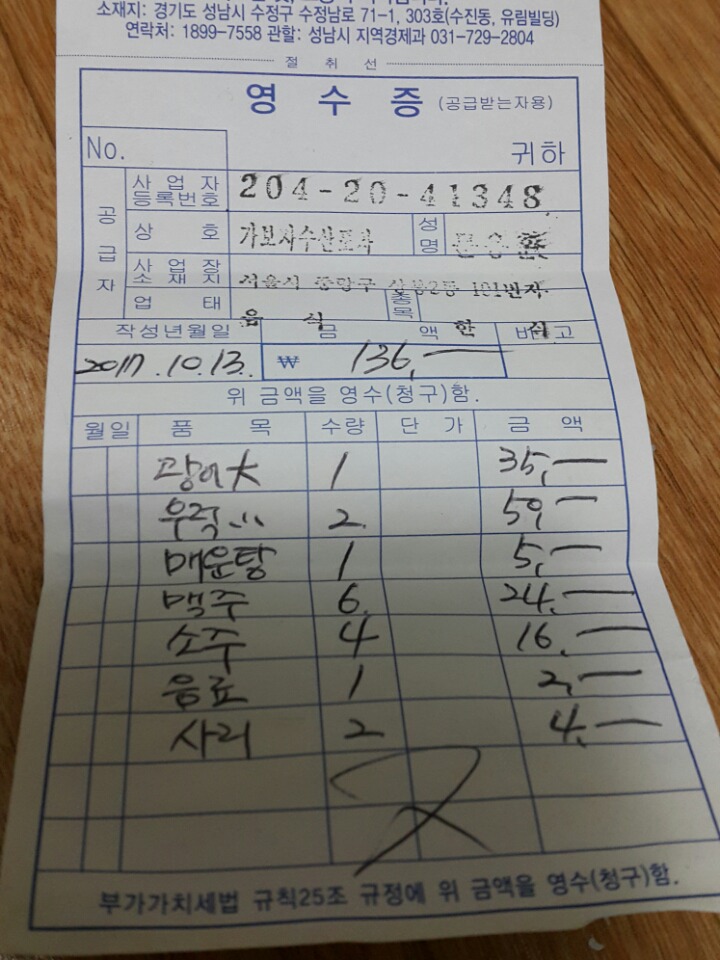 소재지: 경기도 성남시 수정구 수정남로 71-1, 303호(수진동, 유림빌딩)
연락처: 1899-7558 관할: 성남시 지역경제과 031-729-2804
절 취 선
영 수 증 (공급받는자용)
No. 귀하
공급자
사업자등록번호 204-20-41348
상 호 가보자수산포차 성명
사업장소재지 서울시 중랑구 상봉2동 101번지
업 태 음 식 종목 한 식
작성년월일 금 액 비 고
2017.10.13. ₩ 136,—
위 금액을 영수(청구)함.
월일 품 목 수량 단 가 금 액
광어大 1 35,—
우럭 2 50,—
매운탕 1 5,—
맥주 6 24,—
소주 4 16,—
음료 1 2,—
사리 2 4,—
부가가치세법 규칙25조 규정에 위 금액을 영수(청구)함.